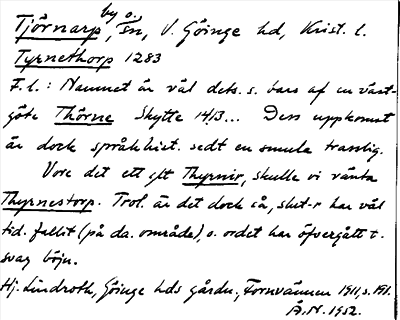 by o.
Tjörnarp, sn, V. Göinge hd, Krist. l.
Tyrnethorp 1283
F. l.: Namnet är väl dets. s. bars af en väst-
göte Thörne Skytte 1413... Dess uppkomst
är dock språkhist. sedt en smula trasslig.
Vore det ett gft Thyrnir, skulle vi vänta
Thyrnestorp. Trol. är det dock så, slut-r har väl
tid. fallit (på da. område), o. ordet har öfvergått t.
svag böjn.
Hj. Lindroth, Göinge hds gårdn., Fornvännen 1911, s. 191.
Å.N. 1952.